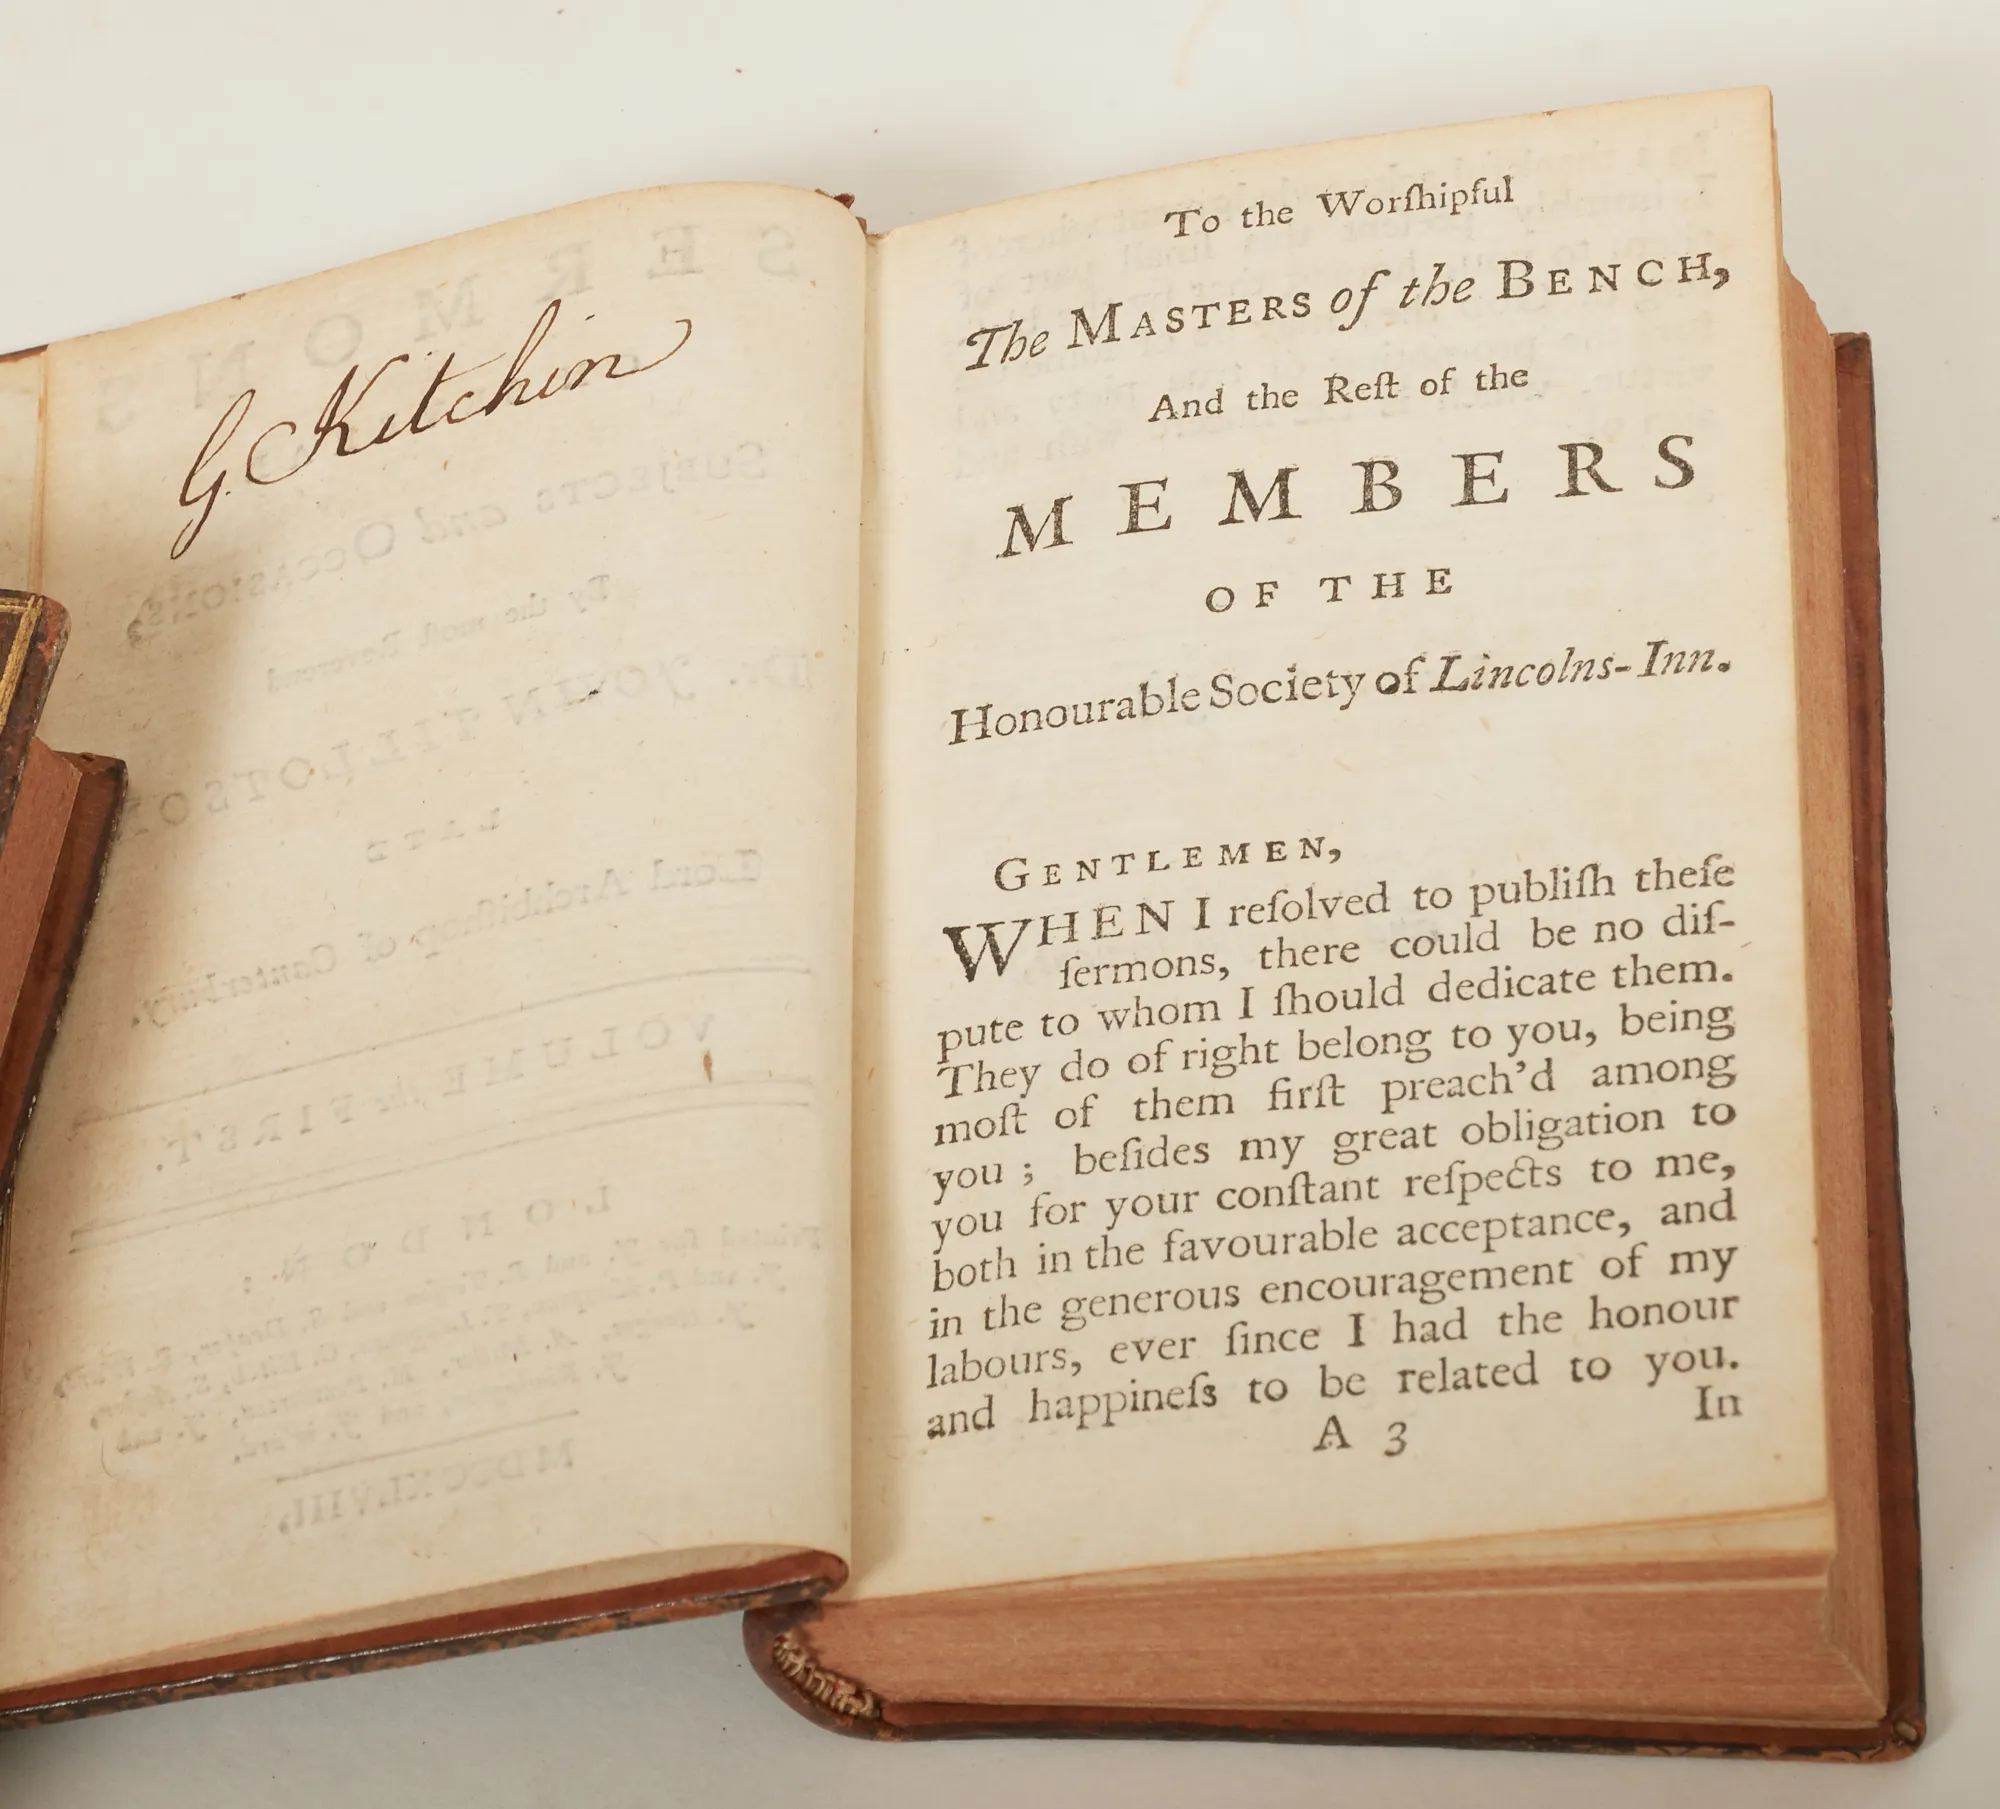 G. Kitchin
SERMONS
SUBJECTS and OCCASIONS,
By the most Reverend
Dr. JOHN TILLOTSON
LATE
Lord Archbiſhop of Canterbury.
VOLUME the FIRST.
LONDON:
MDCCXLVIII.
To the Worſhipful
The MASTERS of the BENCH,
And the Reſt of the
MEMBERS
OF THE
Honourable Society of Lincolns-Inn.
GENTLEMEN,
WHEN I reſolved to publiſh theſe
ſermons, there could be no diſ-
pute to whom I ſhould dedicate them.
They do of right belong to you, being
moſt of them firſt preach'd among
you ; beſides my great obligation to
you for your conſtant reſpects to me,
both in the favourable acceptance, and
in the generous encouragement of my
labours, ever ſince I had the honour
and happineſs to be related to you.
A 3
In